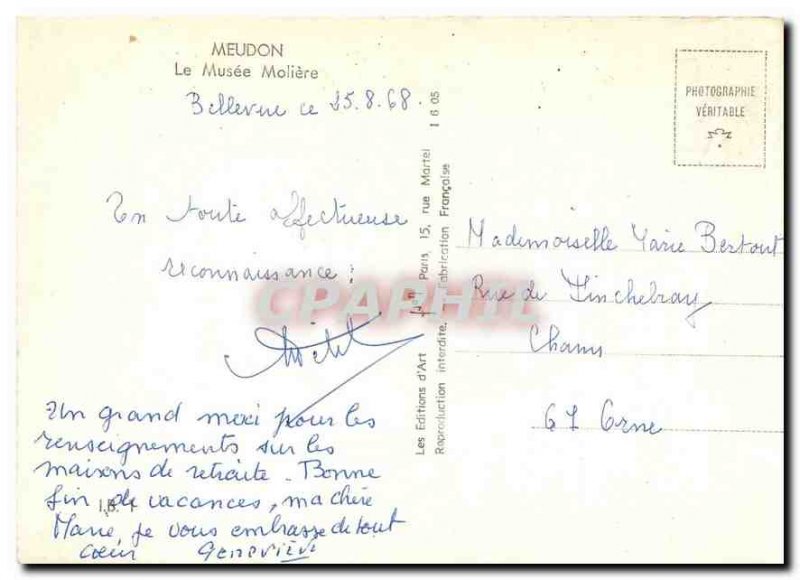 MEUDON
Le Musée Molière
Bellevue ce 25.8.68.
PHOTOGRAPHIE
VÉRITABLE
En toute affectueuse
reconnaissance :
Un grand merci pour les
renseignements sur les
maisons de retraite. Bonne
fin de vacances, ma chère
Marie, je vous embrasse de tout
coeur Geneviève
Les Editions d'Art Paris 15, rue Martel 1 6 05
Reproduction interdite. Fabrication Française
Mademoiselle Marie Bertout
Rue de Tinchebray
Chanu
61 Orne
CPAPHIL